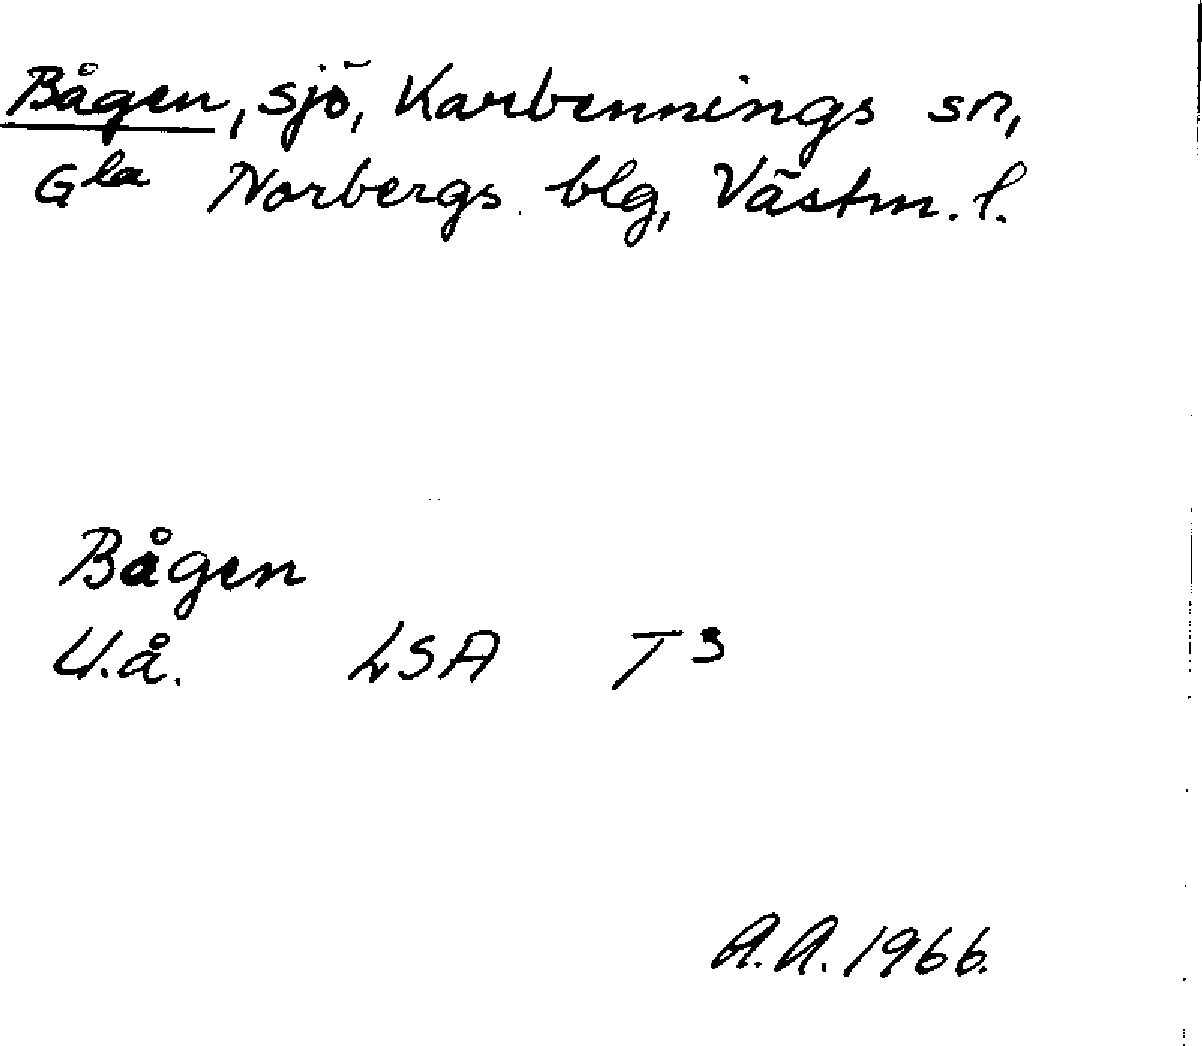 Bågen, sjö, Karbennings sn,
Gla Norbergs blg, Västm. l.
Bågen
U.å. LSA T 3
A.A. 1966.